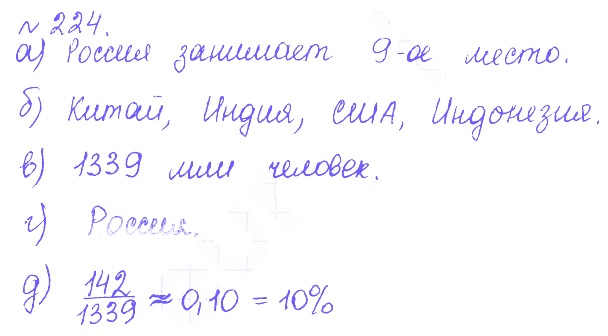 № 224.
а) Россия занимает 9-ое место.
б) Китай, Индия, США, Индонезия.
в) 1339 млн человек.
г) Россия.
д) 142/1339 ≈ 0,10 = 10%